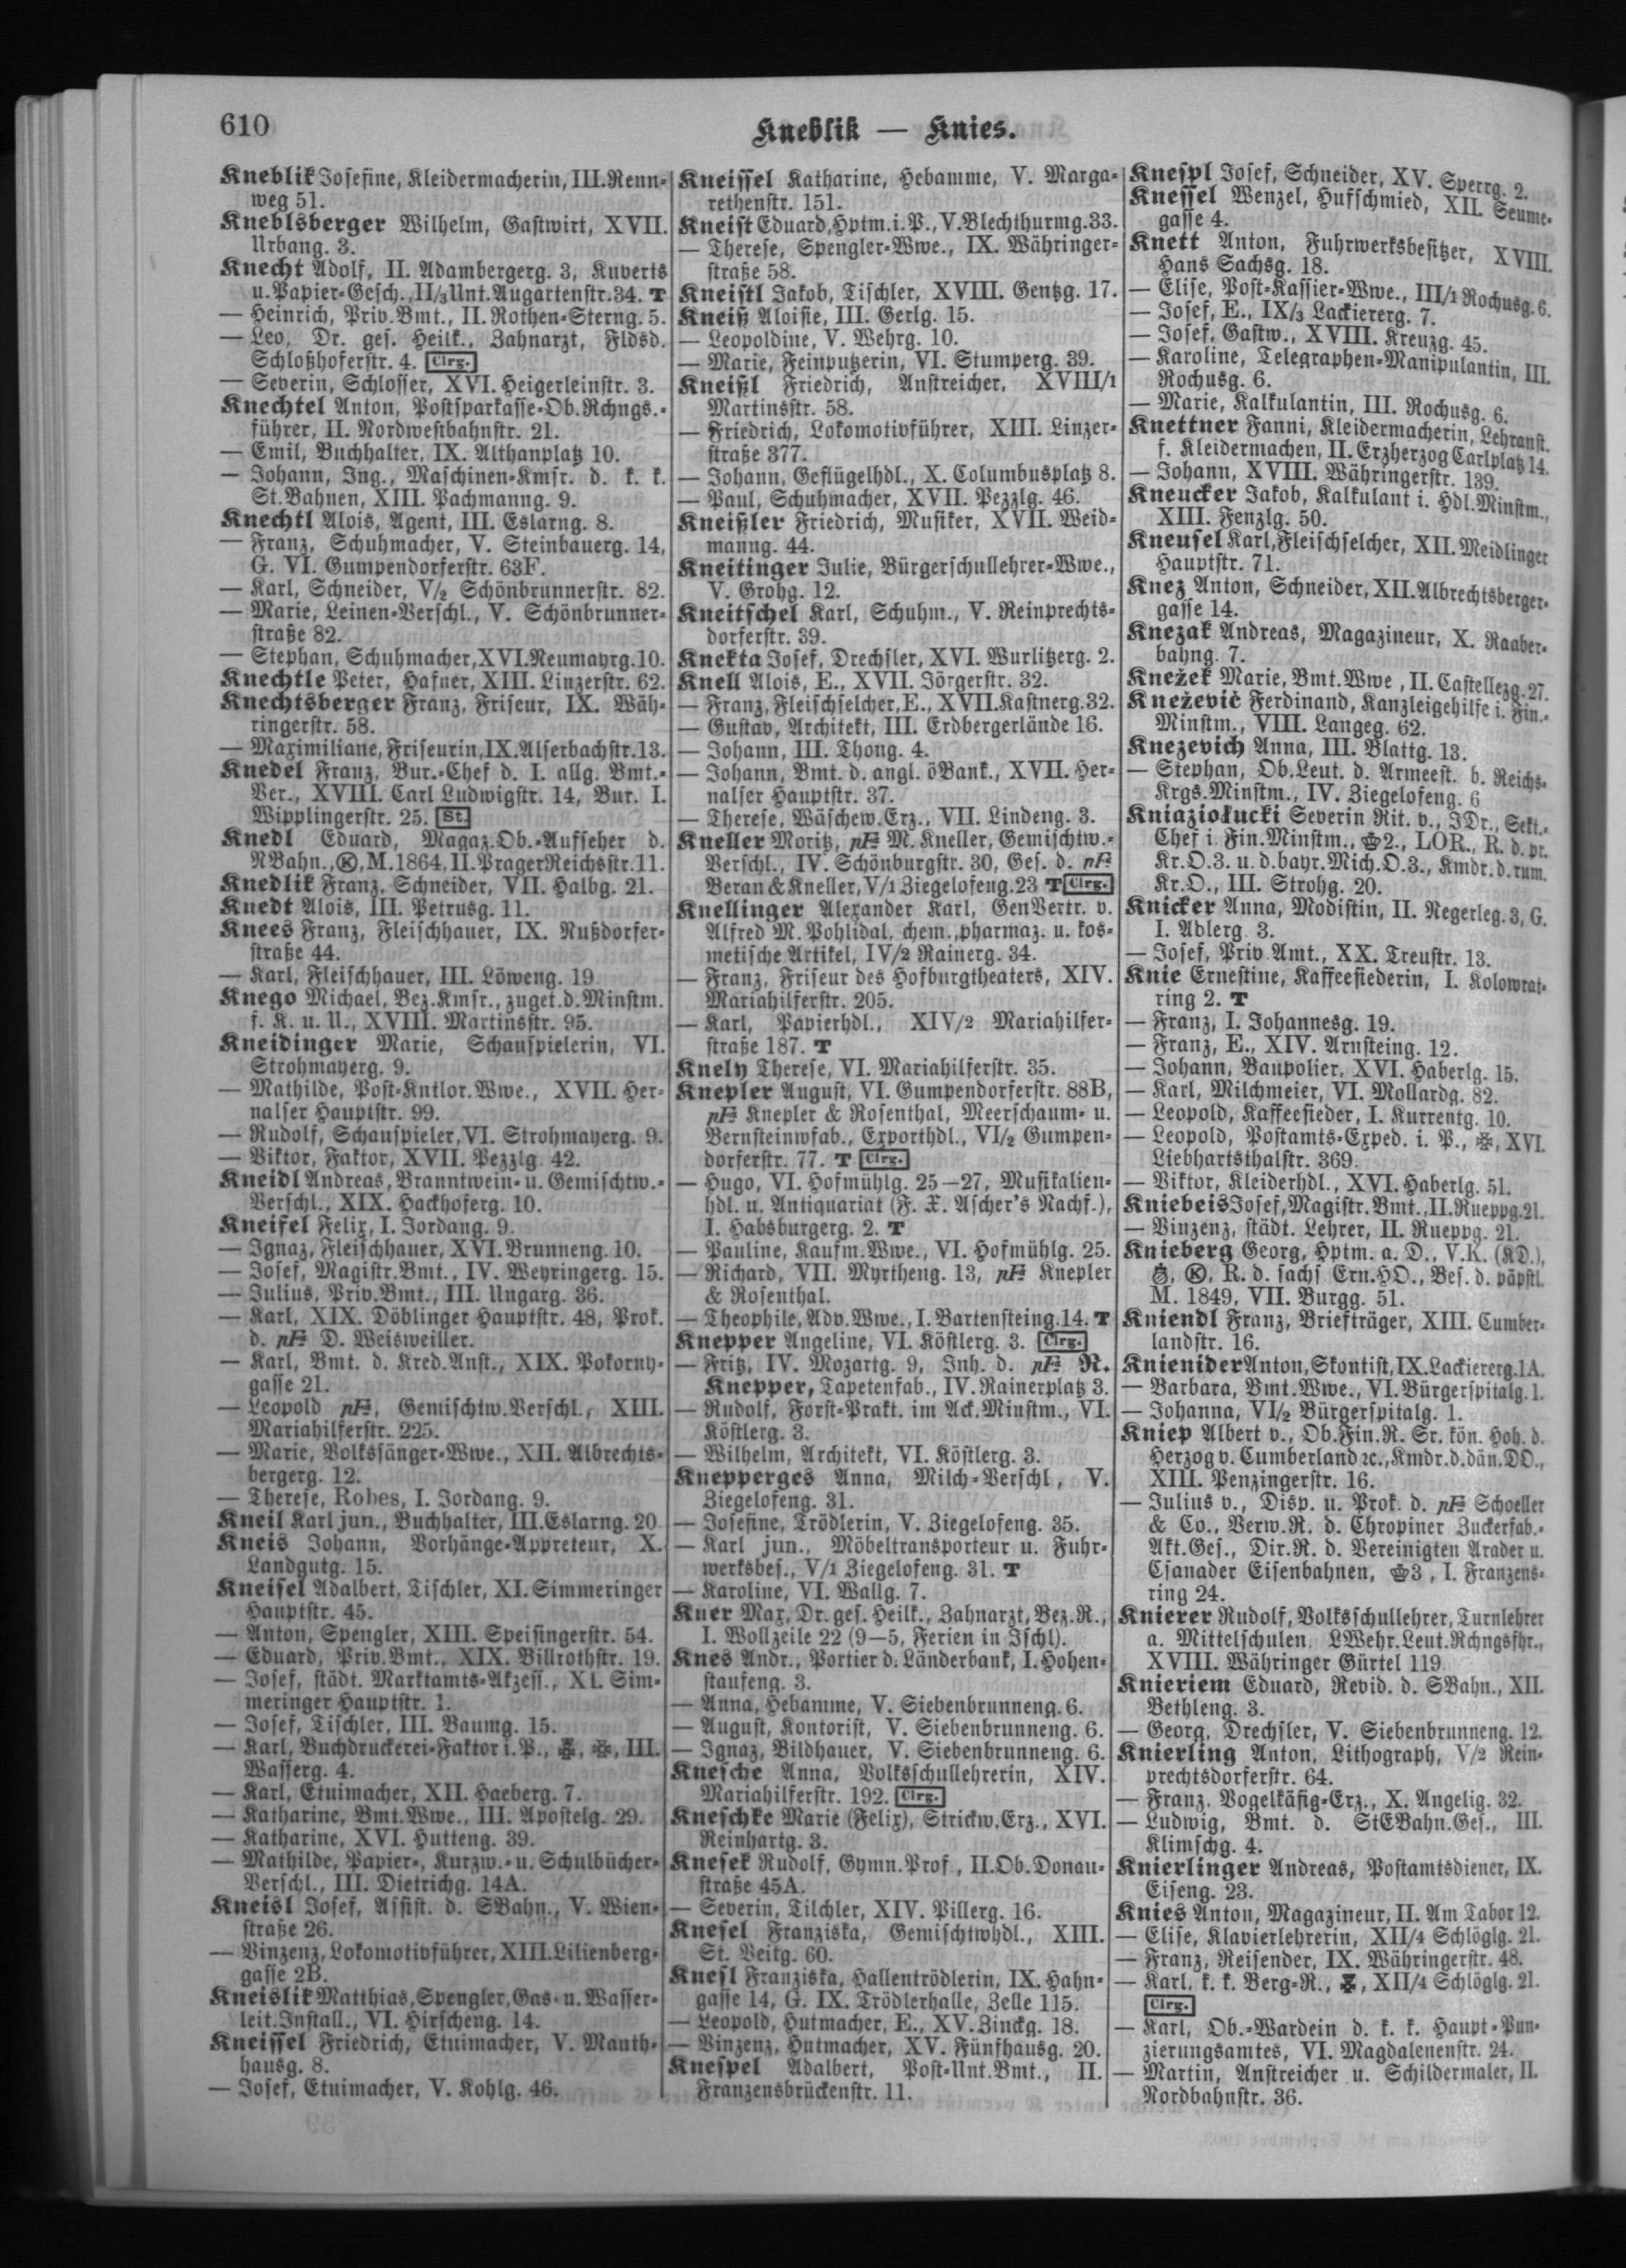 610
Kneblik — Knies.
Kneblik Josefine, Kleidermacherin, III. Renn-
weg 51.
Kneblsberger Wilhelm, Gastwirt, XVII.
Urbang. 3.
Knecht Adolf, II. Adambergerg. 3, Kuverts
u. Papier-Gesch., II/3 Unt. Augartenstr. 34. T
— Heinrich, Priv. Bmt., II. Rothen-Sterng. 5.
— Leo, Dr. ges. Heilk., Zahnarzt, Fldsd.
Schloßhoferstr. 4. Clrg.
— Severin, Schlosser, XVI. Heigerleinstr. 3.
Knechtel Anton, Postsparkasse-Ob. Rchngs.-
führer, II. Nordwestbahnstr. 21.
— Emil, Buchhalter, IX. Althanplatz 10.
— Johann, Ing., Maschinen-Kmsr. d. k. k.
St. Bahnen, XIII. Pachmanng. 9.
Knechtl Alois, Agent, III. Eslarng. 8.
— Franz, Schuhmacher, V. Steinbauerg. 14,
G. VI. Gumpendorferstr. 63F.
— Karl, Schneider, V/2 Schönbrunnerstr. 82.
— Marie, Leinen-Verschl., V. Schönbrunner-
straße 82.
— Stephan, Schuhmacher, XVI. Neumayrg. 10.
Knechtle Peter, Hafner, XIII. Linzerstr. 62.
Knechtsberger Franz, Friseur, IX. Wäh-
ringerstr. 58.
— Maximiliane, Friseurin, IX. Alserbachstr. 13.
Knedel Franz, Bur.-Chef d. I. allg. Bmt.-
Ver., XVIII. Carl Ludwigstr. 14, Bur. I.
Wipplingerstr. 25. St.
Knedl Eduard, Magaz. Ob.-Aufseher d.
NBahn., Ⓚ, M. 1864, II. Prager Reichsstr. 11.
Knedlik Franz, Schneider, VII. Halbg. 21.
Knedt Alois, III. Petrusg. 11.
Knees Franz, Fleischhauer, IX. Nußdorfer-
straße 44.
— Karl, Fleischhauer, III. Löweng. 19
Knego Michael, Bez. Kmsr., zuget. d. Minstm.
f. K. u. U., XVIII. Martinsstr. 95.
Kneidinger Marie, Schauspielerin, VI.
Strohmayerg. 9.
— Mathilde, Post-Kntlor. Wwe., XVII. Her-
nalser Hauptstr. 99.
— Rudolf, Schauspieler, VI. Strohmayerg. 9.
— Viktor, Faktor, XVII. Pezzlg. 42.
Kneidl Andreas, Branntwein- u. Gemischtw.-
Verschl., XIX. Hackhoferg. 10.
Kneifel Felix, I. Jordang. 9.
— Ignaz, Fleischhauer, XVI. Brunneng. 10.
— Josef, Magistr. Bmt., IV. Weyringerg. 15.
— Julius, Priv. Bmt., III. Ungarg. 36.
— Karl, XIX. Döblinger Hauptstr. 48, Prok.
d. pF= D. Weisweiller.
— Karl, Bmt. d. Kred. Anst., XIX. Pokorny-
gasse 21.
— Leopold pF=, Gemischtw. Verschl., XIII.
Mariahilferstr. 225.
— Marie, Volkssänger-Wwe., XII. Albrechts-
bergerg. 12.
— Therese, Robes, I. Jordang. 9.
Kneil Karl jun., Buchhalter, III. Eslarng. 20
Kneis Johann, Vorhänge-Appreteur, X.
Landgutg. 15.
Kneisel Adalbert, Tischler, XI. Simmeringer
Hauptstr. 45.
— Anton, Spengler, XIII. Speisingerstr. 54.
— Eduard, Priv. Bmt., XIX. Billrothstr. 19.
— Josef, städt. Marktamts-Akzess., XI. Sim-
meringer Hauptstr. 1.
— Josef, Tischler, III. Baumg. 15.
— Karl, Buchdruckerei-Faktor i. P., III.
Wasserg. 4.
— Karl, Etuimacher, XII. Haeberg. 7.
— Katharine, Bmt. Wwe., III. Apostelg. 29.
— Katharine, XVI. Hutteng. 39.
— Mathilde, Papier-, Kurzw.- u. Schulbücher-
Verschl., III. Dietrichg. 14A.
Kneisl Josef, Assist. d. SBahn., V. Wien-
straße 26.
— Vinzenz, Lokomotivführer, XIII. Lilienberg-
gasse 2B.
Kneislik Matthias, Spengler, Gas- u. Wasser-
leit. Install., VI. Hirscheng. 14.
Kneissel Friedrich, Etuimacher, V. Mauth-
hausg. 8.
— Josef, Etuimacher, V. Kohlg. 46.
Kneissel Katharine, Hebamme, V. Marga-
rethenstr. 151.
Kneist Eduard, Hptm. i. P., V. Blechthurmg. 33.
— Therese, Spengler-Wwe., IX. Währinger-
straße 58.
Kneistl Jakob, Tischler, XVIII. Gentzg. 17.
Kneiß Aloisie, III. Gerlg. 15.
— Leopoldine, V. Wehrg. 10.
— Marie, Feinputzerin, VI. Stumperg. 39.
Kneißl Friedrich, Anstreicher, XVIII/1
Martinsstr. 58.
— Friedrich, Lokomotivführer, XIII. Linzer-
straße 377.
— Johann, Geflügelhdl., X. Columbusplatz 8.
— Paul, Schuhmacher, XVII. Pezzlg. 46.
Kneißler Friedrich, Musiker, XVII. Weid-
manng. 44.
Kneitinger Julie, Bürgerschullehrer-Wwe.,
V. Grohg. 12.
Kneitschel Karl, Schuhm., V. Reinprechts-
dorferstr. 39.
Knekta Josef, Drechsler, XVI. Wurlitzerg. 2.
Knell Alois, E., XVII. Jörgerstr. 32.
— Franz, Fleischselcher, E., XVII. Kastnerg. 32.
— Gustav, Architekt, III. Erdbergerlände 16.
— Johann, III. Thong. 4.
— Johann, Bmt. d. angl. öBank., XVII. Her-
nalser Hauptstr. 37.
— Therese, Wäschew. Erz., VII. Lindeng. 3.
Kneller Moritz, pF= M. Kneller, Gemischtw.-
Verschl., IV. Schönburgstr. 30, Ges. d. pF=
Beran & Kneller, V/1 Ziegelofeng. 23 T Clrg.
Knellinger Alexander Karl, GenVertr. v.
Alfred M. Pohlidal, chem., pharmaz. u. kos-
metische Artikel, IV/2 Rainerg. 34.
— Franz, Friseur des Hofburgtheaters, XIV.
Mariahilferstr. 205.
— Karl, Papierhdl., XIV/2 Mariahilfer-
straße 187. T
Knely Therese, VI. Mariahilferstr. 35.
Knepler August, VI. Gumpendorferstr. 88B,
pF= Knepler & Rosenthal, Meerschaum- u.
Bernsteinwfab., Exporthdl., VI/2 Gumpen-
dorferstr. 77. T Clrg.
— Hugo, VI. Hofmühlg. 25—27, Musikalien-
hdl. u. Antiquariat (F. X. Ascher's Nachf.),
I. Habsburgerg. 2. T
— Pauline, Kaufm. Wwe., VI. Hofmühlg. 25.
— Richard, VII. Myrtheng. 13, pF= Knepler
& Rosenthal.
— Theophile, Adv. Wwe., I. Bartensteing. 14. T
Knepper Angeline, VI. Köstlerg. 3. Clrg.
— Fritz, IV. Mozartg. 9, Inh. d. pF= R.
Knepper, Tapetenfab., IV. Rainerplatz 3.
— Rudolf, Forst-Prakt. im Ack. Minstm., VI.
Köstlerg. 3.
— Wilhelm, Architekt, VI. Köstlerg. 3.
Knepperges Anna, Milch-Verschl, V.
Ziegelofeng. 31.
— Josefine, Trödlerin, V. Ziegelofeng. 35.
— Karl jun., Möbeltransporteur u. Fuhr-
werksbes., V/1 Ziegelofeng. 31. T
— Karoline, VI. Wallg. 7.
Kner Max, Dr. ges. Heilk., Zahnarzt, Bez. R.,
I. Wollzeile 22 (9—5, Ferien in Ischl).
Knes Andr., Portier d. Länderbank, I. Hohen-
staufeng. 3.
— Anna, Hebamme, V. Siebenbrunneng. 6.
— August, Kontorist, V. Siebenbrunneng. 6.
— Ignaz, Bildhauer, V. Siebenbrunneng. 6.
Knesche Anna, Volksschullehrerin, XIV.
Mariahilferstr. 192. Clrg.
Kneschke Marie (Felix), Strickw. Erz., XVI.
Reinhartg. 3.
Knesek Rudolf, Gymn. Prof, II. Ob. Donau-
straße 45A.
— Severin, Tilchler, XIV. Pillerg. 16.
Knesel Franziska, Gemischtwhdl., XIII.
St. Veitg. 60.
Knesl Franziska, Hallentrödlerin, IX. Hahn-
gasse 14, G. IX. Trödlerhalle, Zelle 115.
— Leopold, Hutmacher, E., XV. Zinckg. 18.
— Vinzenz, Hutmacher, XV. Fünfhausg. 20.
Knespel Adalbert, Post-Unt. Bmt., II.
Franzensbrückenstr. 11.
Knespl Josef, Schneider, XV. Sperrg. 2.
Knessel Wenzel, Hufschmied, XII. Seume-
gasse 4.
Knett Anton, Fuhrwerksbesitzer, XVIII.
Hans Sachsg. 18.
— Elise, Post-Kassier-Wwe., III/1 Rochusg. 6.
— Josef, E., IX/3 Lackiererg. 7.
— Josef, Gastw., XVIII. Kreuzg. 45.
— Karoline, Telegraphen-Manipulantin, III.
Rochusg. 6.
— Marie, Kalkulantin, III. Rochusg. 6.
Knettner Fanni, Kleidermacherin, Lehranst.
f. Kleidermachen, II. Erzherzog Carlplatz 14.
— Johann, XVIII. Währingerstr. 139.
Kneucker Jakob, Kalkulant i. Hdl. Minstm.,
XIII. Fenzlg. 50.
Kneusel Karl, Fleischselcher, XII. Meidlinger
Hauptstr. 71.
Knez Anton, Schneider, XII. Albrechtsberger-
gasse 14.
Knezak Andreas, Magazineur, X. Raaber-
bahng. 7.
Knežek Marie, Bmt. Wwe, II. Castellezg. 27.
Knežević Ferdinand, Kanzleigehilfe i. Fin.-
Minstm., VIII. Langeg. 62.
Knezevich Anna, III. Blattg. 13.
— Stephan, Ob. Leut. d. Armeest. b. Reichs-
Krgs. Minstm., IV. Ziegelofeng. 6
Kniaziołucki Severin Rit. v., JDr., Sekt.-
Chef i. Fin. Minstm., 2., LOR., R. d. pr.
Kr. O. 3. u. d. bayr. Mich. O. 3., Kmdr. d. rum.
Kr. O., III. Strohg. 20.
Knicker Anna, Modistin, II. Negerleg. 3, G.
I. Adlerg. 3.
— Josef, Priv Amt., XX. Treustr. 13.
Knie Ernestine, Kaffeesiederin, I. Kolowrat-
ring 2. T
— Franz, I. Johannesg. 19.
— Franz, E., XIV. Arnsteing. 12.
— Johann, Baupolier, XVI. Haberlg. 15.
— Karl, Milchmeier, VI. Mollardg. 82.
— Leopold, Kaffeesieder, I. Kurrentg. 10.
— Leopold, Postamts-Exped. i. P., XVI.
Liebhartsthalstr. 369.
— Viktor, Kleiderhdl., XVI. Haberlg. 51.
Kniebeis Josef, Magistr. Bmt., II. Rueppg. 21.
— Vinzenz, städt. Lehrer, II. Rueppg. 21.
Knieberg Georg, Hptm. a. D., V.K. (KD.),
Ⓚ, R. d. sachs Ern. HO., Bes. d. päpstl.
M. 1849, VII. Burgg. 51.
Kniendl Franz, Briefträger, XIII. Cumber-
landstr. 16.
Knienider Anton, Skontist, IX. Lackiererg. 1A.
— Barbara, Bmt. Wwe., VI. Bürgerspitalg. 1.
— Johanna, VI/2 Bürgerspitalg. 1.
Kniep Albert v., Ob. Fin. R. Sr. kön. Hoh. d.
Herzog v. Cumberland ꝛc., Kmdr. d. dän. DO.,
XIII. Penzingerstr. 16.
— Julius v., Disp. u. Prok. d. pF= Schoeller
& Co., Verw. R. d. Chropiner Zuckerfab.-
Akt. Ges., Dir. R. d. Vereinigten Arader u.
Csanader Eisenbahnen, 3, I. Franzens-
ring 24.
Knierer Rudolf, Volksschullehrer, Turnlehrer
a. Mittelschulen, LWehr. Leut. Rchngsfhr.,
XVIII. Währinger Gürtel 119
Knieriem Eduard, Revid. d. SBahn., XII.
Bethleng. 3.
— Georg, Drechsler, V. Siebenbrunneng. 12.
Knierling Anton, Lithograph, V/2 Rein-
prechtsdorferstr. 64.
— Franz, Vogelkäfig-Erz., X. Angelig. 32.
— Ludwig, Bmt. d. StEBahn. Ges., III.
Klimschg. 4.
Knierlinger Andreas, Postamtsdiener, IX.
Eiseng. 23.
Knies Anton, Magazineur, II. Am Tabor 12.
— Elise, Klavierlehrerin, XII/4 Schlöglg. 21.
— Franz, Reisender, IX. Währingerstr. 48.
— Karl, k. k. Berg-R., XII/4 Schlöglg. 21.
Clrg.
— Karl, Ob.-Wardein d. k. k. Haupt-Pun-
zierungsamtes, VI. Magdalenenstr. 24.
— Martin, Anstreicher u. Schildermaler, II.
Nordbahnstr. 36.